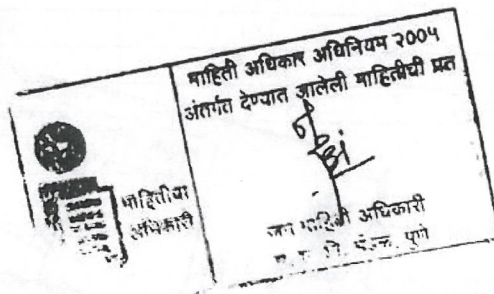 माहिती अधिकार अधिनियम २००५
अंतर्गत देण्यात आलेली माहितीची प्रत
माहितीचा
अधिकारी
जन माहिती अधिकारी
पुणे